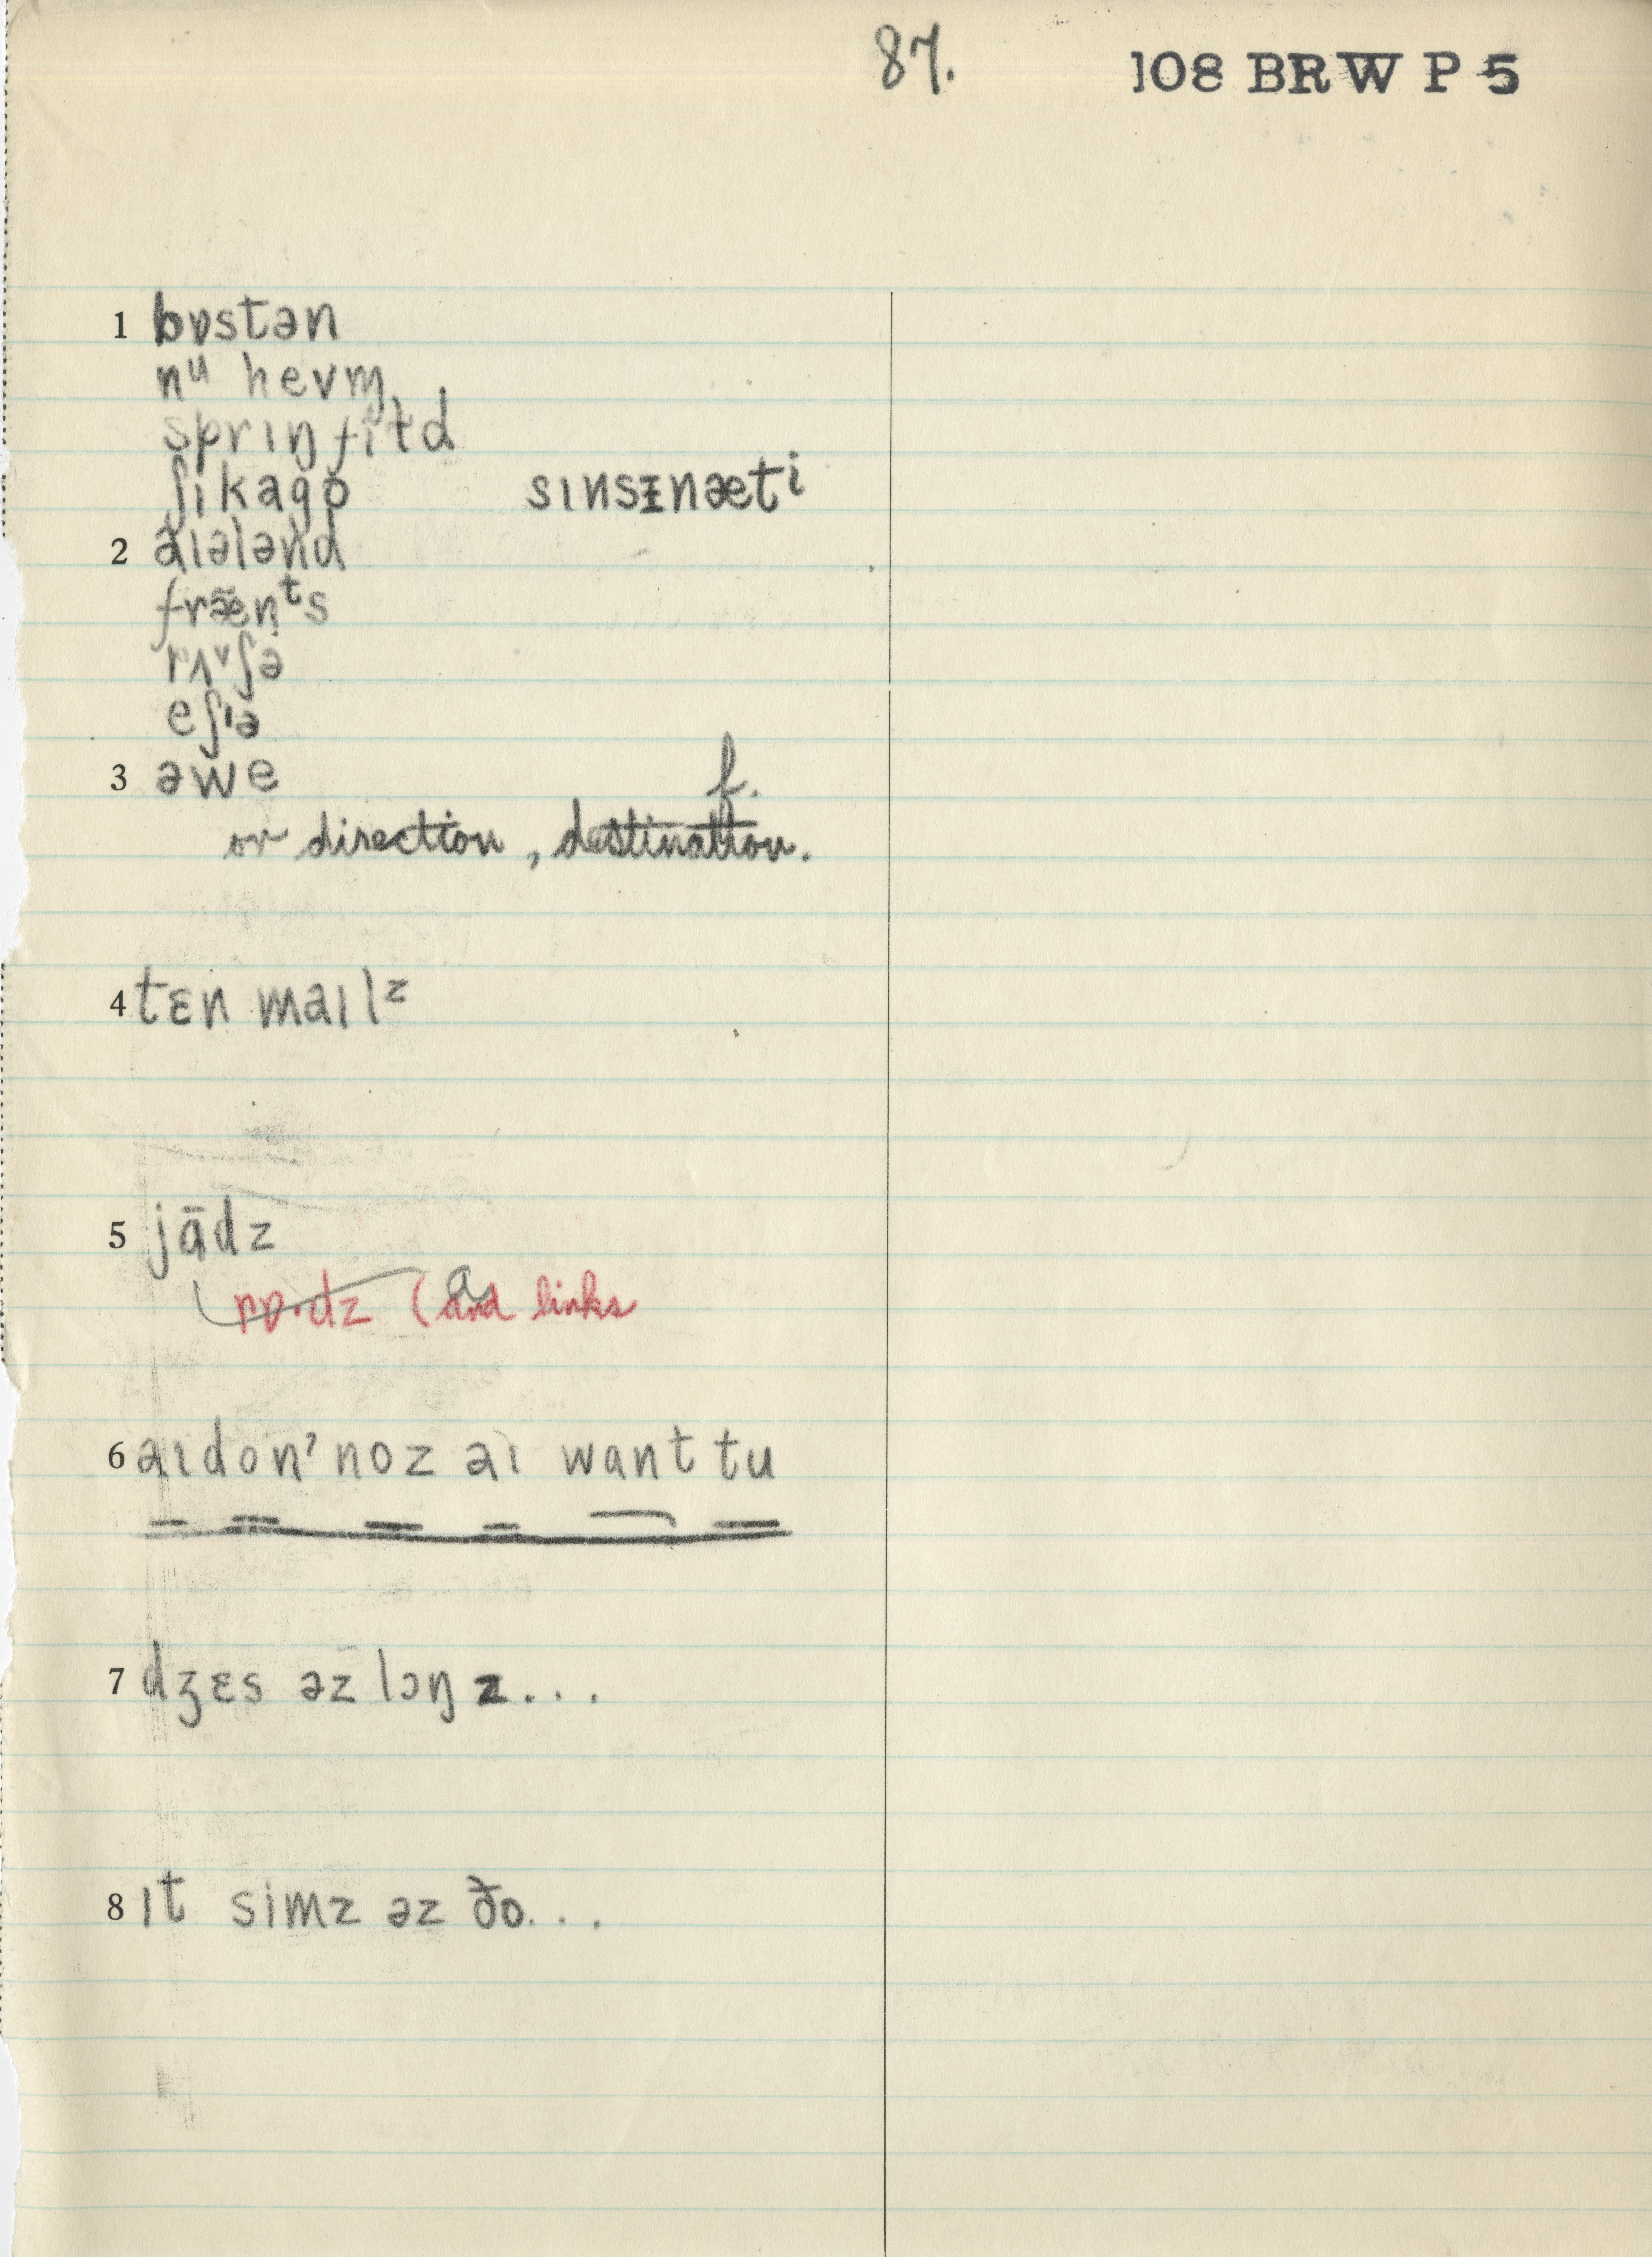 87. 108 BRW P 5
1 bɒstən
nᵘ hevm̩
sprɪŋfiɫd
ʃikago sɪnsɪnætⁱ
2 aɪələnd
fræ̃nᵗs
rʌᵛʃə
eʃᶦə
3 əwe f.
or direction, destination.
4 tɛn maɪlᶻ
5 jādz
rɒ·dz (and links
6 aɪdonˀnoz aɪ want tu
7 dʒɛs əz lɔŋ z...
8 ɪt simz əz ðo...